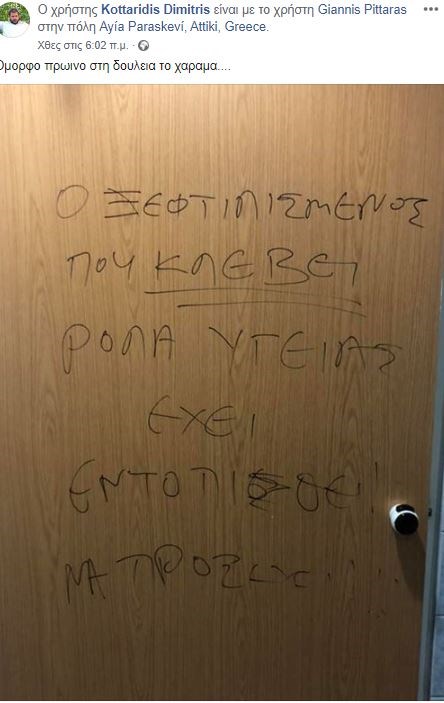 Ο χρήστης Kottaridis Dimitris είναι με το χρήστη Giannis Pittaras
στην πόλη Αγία Paraskeví, Attiki, Greece.
Χθες στις 6:02 π.μ. ·
Όμορφο πρωινο στη δουλεια το χαραμα....
Ο ΞΕΦΤΙΛΙΣΜΕΝΟΣ
ΠΟΥ ΚΛΕΒΕΙ
ΡΟΛΑ ΥΓΕΙΑΣ
ΕΧΕΙ
ΕΝΤΟΠΙΣΘΕΙ!
ΝΑ ΠΡΟΣΕΧΕΙ...